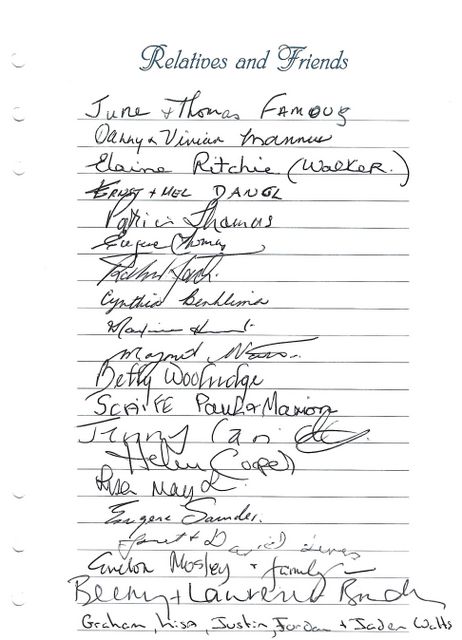 Relatives and Friends
June + Thomas FAMOUS
Danny & Vivian
Elaine Ritchie (Walker.)
ERNST + MEL DANGL
Patrici Thomas
Eugene Thomas
Cynthia Benhlima
Betty Woolridge
SCAIFE Paul & Marion
Jenny
Helen Cooper
Lisa
Eugene Saunders.
Janet & David
Mosley + family
Beeny + Laurence
Graham, Lisa, Justin, Jordan + Jaden Watts